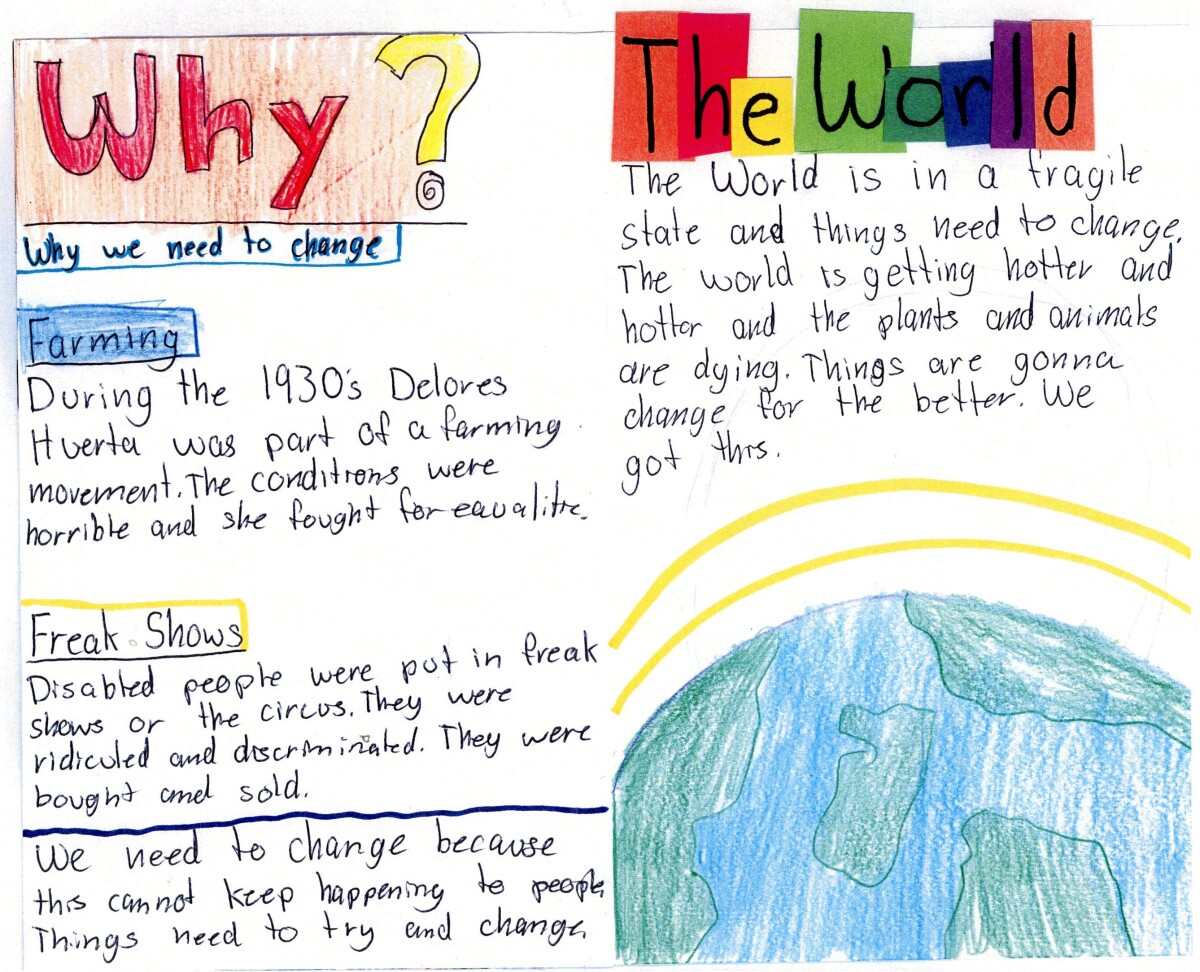 Why?
Why we need to change
Farming
During the 1930's Delores
Huerta was part of a farming
movement. The conditions were
horrible and she fought for eaualite.
Freak Shows
Disabled people were put in freak
shows or the circus. They were
ridiculed and discriminated. They were
bought and sold.
We need to change because
this cannot keep happening to people
Things need to try and change.
The World
The World is in a fragile
state and things need to change.
The world is getting hotter and
hotter and the plants and animals
are dying. Things are gonna
change for the better. We
got this.